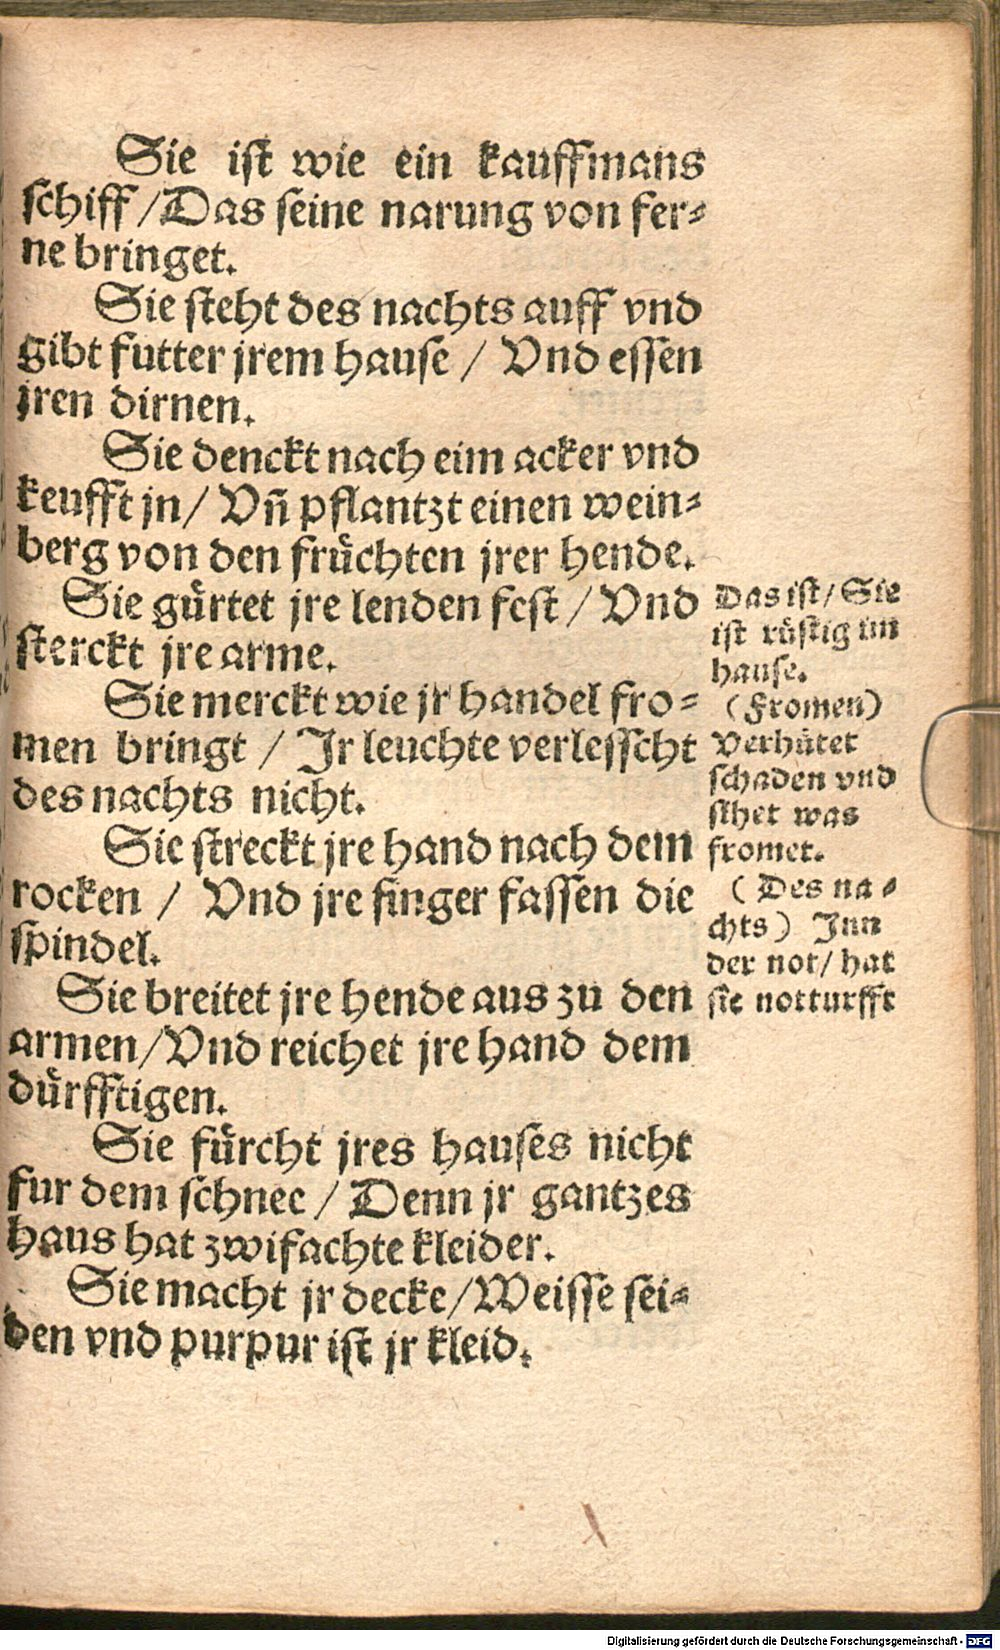 Sie ist wie ein kauffmans
schiff /Das seine narung von fer⸗
ne bringet.
Sie steht des nachts auff vnd
gibt futter jrem hause / Vnd essen
jren dirnen.
Sie denckt nach eim acker vnd
keufft jn/ Vñ pflantzt einen wein⸗
berg von den früchten jrer hende.
Sie gürtet jre lenden fest / Vnd
sterckt jre arme.
Sie merckt wie jr handel fro⸗
men bringt / Jr leuchte verlesscht
des nachts nicht.
Sie streckt jre hand nach dem
rocken / Vnd jre finger fassen die
spindel.
Sie breitet jre hende aus zu den
armen/Vnd reichet jre hand dem
dürfftigen.
Sie fürcht jres hauses nicht
fur dem schnee / Denn jr gantzes
haus hat zwifachte kleider.
Sie macht jr decke/Weisse sei⸗
den vnd purpur ist jr kleid.
Das ist/ Sie
ist rüstig im
hause.
(Fromen)
Verhütet
schaden vnd
sihet was
fromet.
(Des na⸗
chts) Inn
der not/ hat
sie notturfft
Digitalisierung gefördert durch die Deutsche Forschungsgemeinschaft - DFG